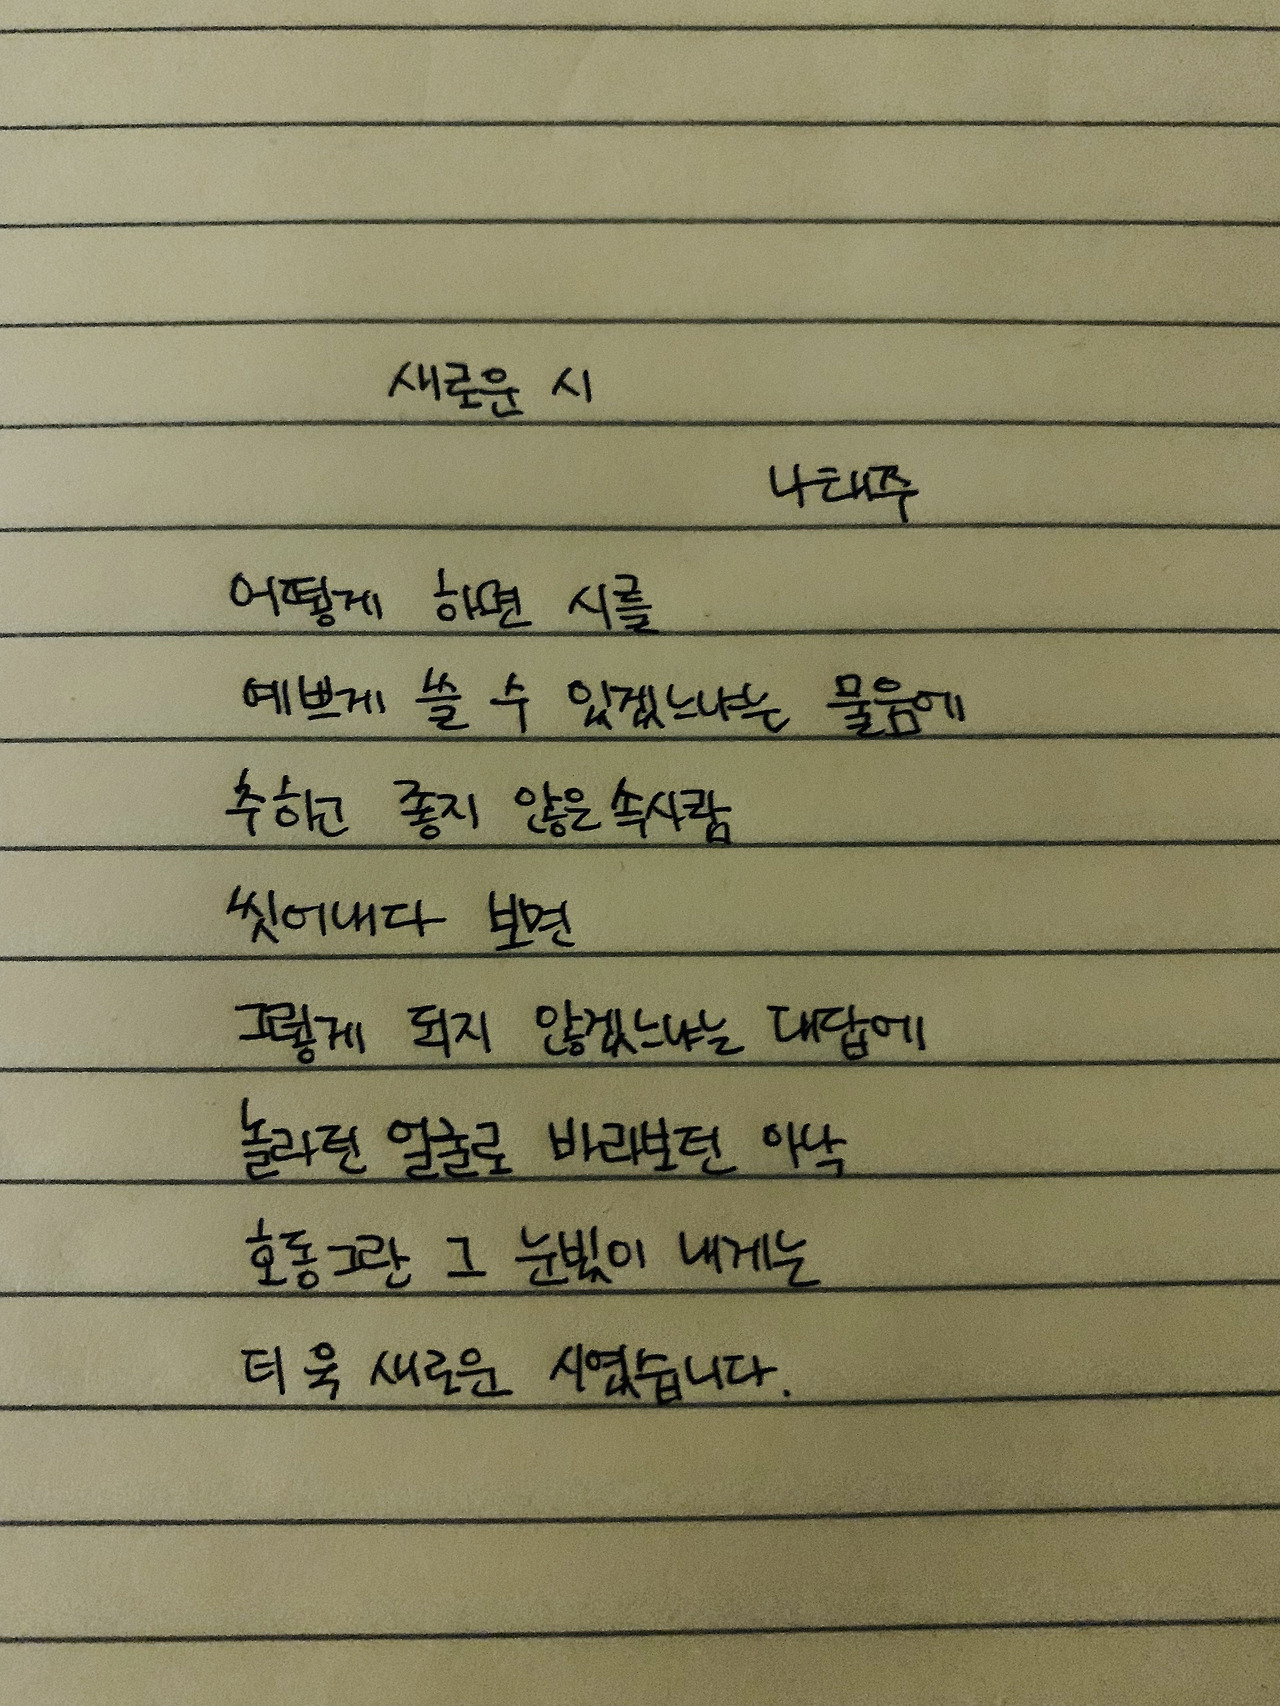 새로운 시
나태주
어떻게 하면 시를
예쁘게 쓸 수 있겠느냐는 물음에
추하고 좋지 않은 속사람
씻어내다 보면
그렇게 되지 않겠느냐는 대답에
놀라던 얼굴로 바라보던 아낙
호동그란 그 눈빛이 내게는
더욱 새로운 시였습니다.